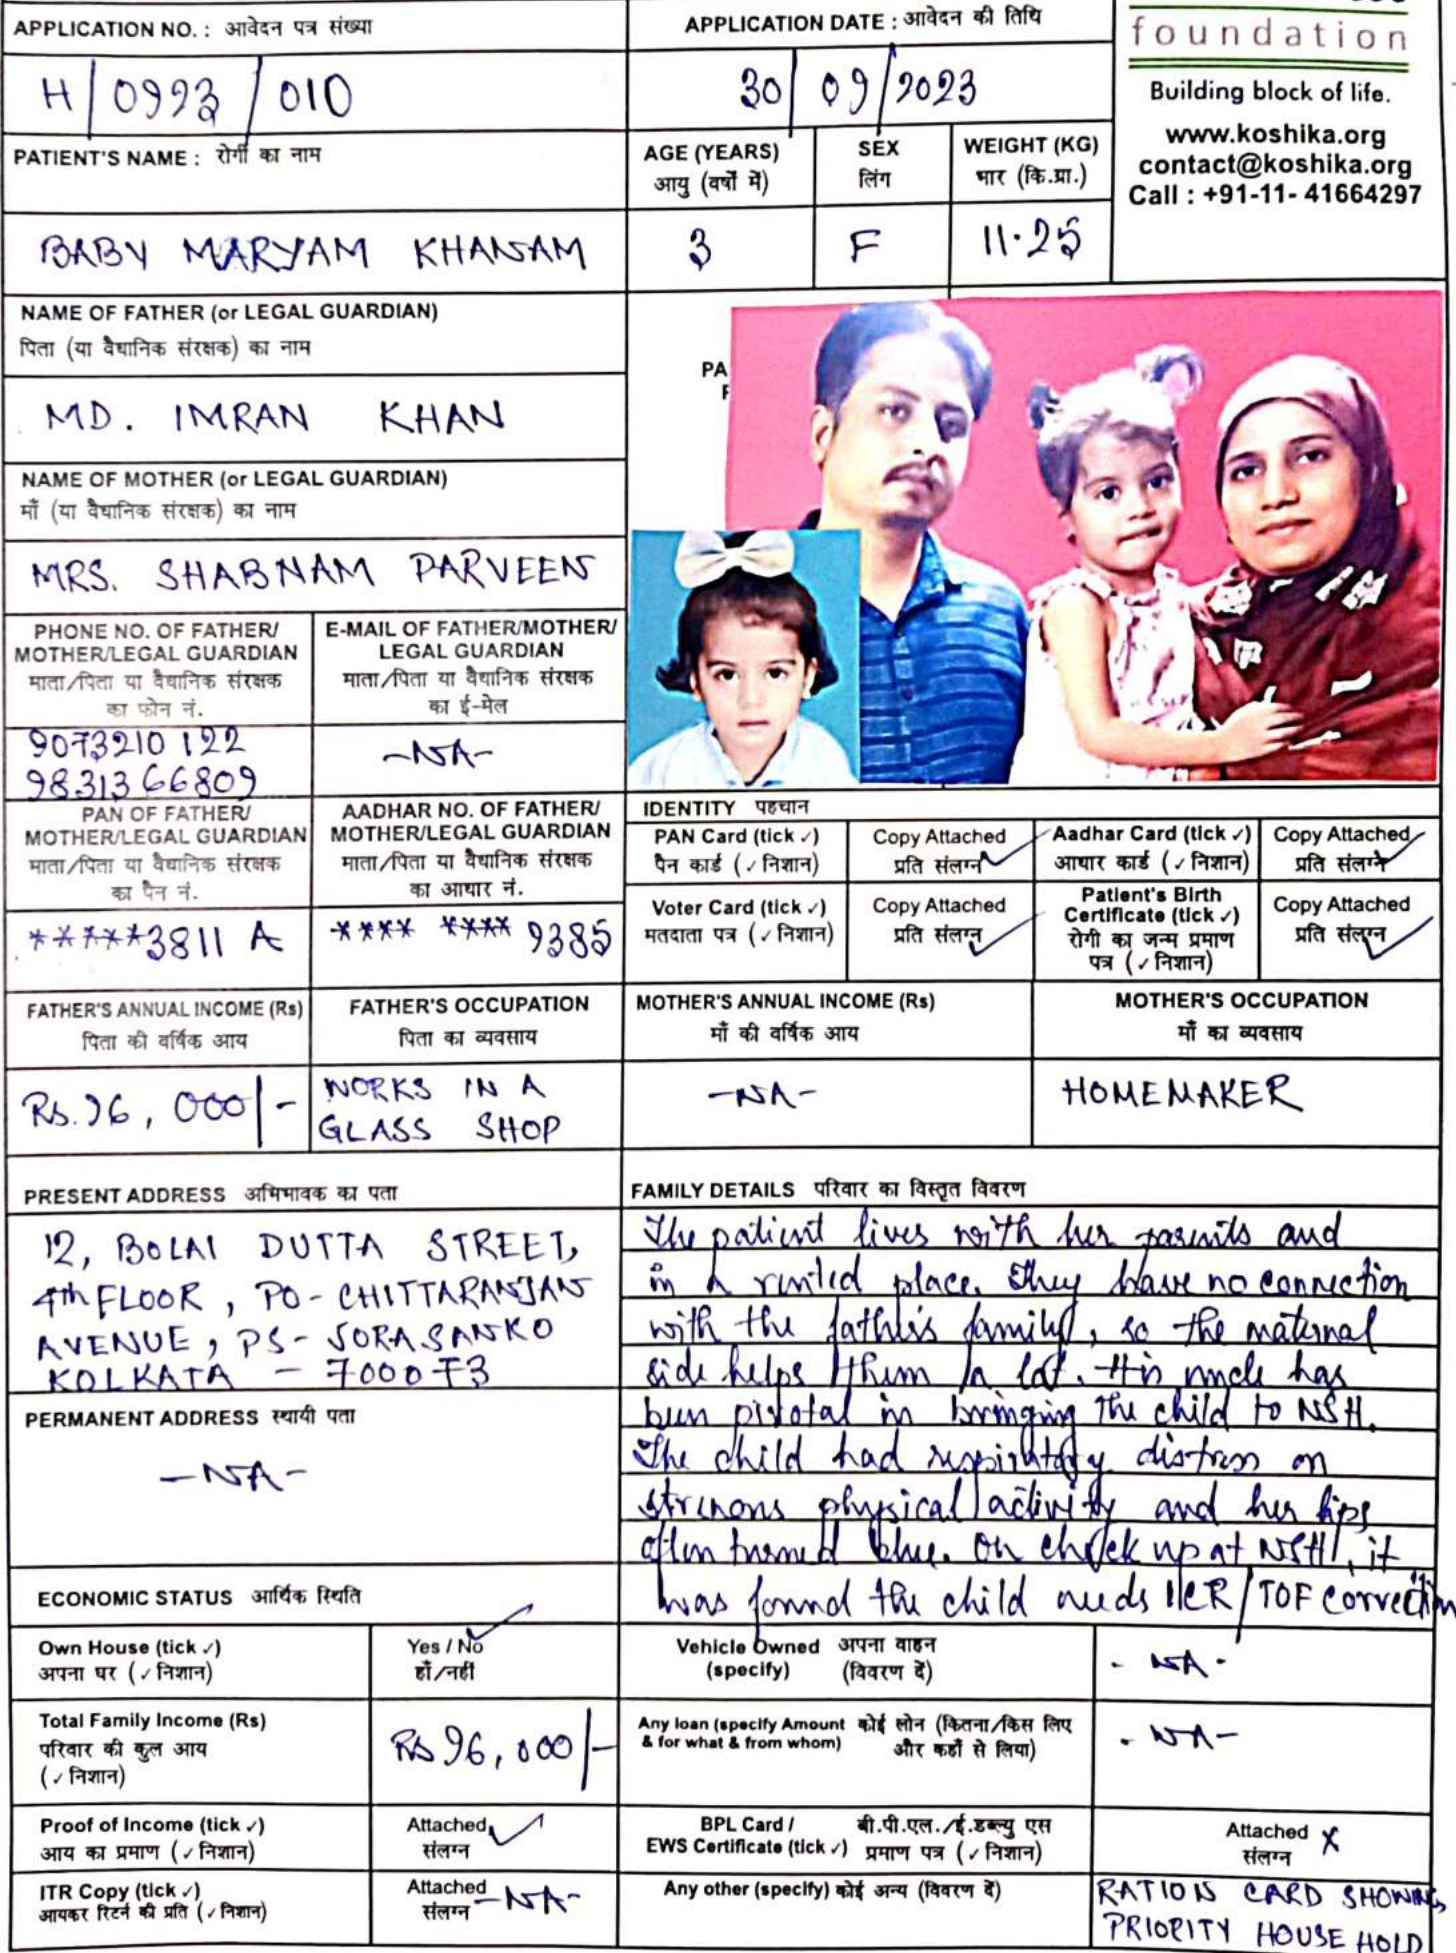 APPLICATION NO. : आवेदन पत्र संख्या
H/0923/010
APPLICATION DATE : आवेदन की तिथि
30/09/2023
foundation
Building block of life.
www.koshika.org
contact@koshika.org
Call : +91-11- 41664297
PATIENT'S NAME : रोगी का नाम
BABY MARYAM KHANAM
AGE (YEARS)
आयु (वर्षों में)
3
SEX
लिंग
F
WEIGHT (KG)
भार (कि.ग्रा.)
11.25
NAME OF FATHER (or LEGAL GUARDIAN)
पिता (या वैधानिक संरक्षक) का नाम
MD. IMRAN KHAN
NAME OF MOTHER (or LEGAL GUARDIAN)
माँ (या वैधानिक संरक्षक) का नाम
MRS. SHABNAM PARVEEN
PA
PHONE NO. OF FATHER/
MOTHER/LEGAL GUARDIAN
माता/पिता या वैधानिक संरक्षक
का फोन नं.
9073210122
9831366809
E-MAIL OF FATHER/MOTHER/
LEGAL GUARDIAN
माता/पिता या वैधानिक संरक्षक
का ई-मेल
-NA-
PAN OF FATHER/
MOTHER/LEGAL GUARDIAN
माता/पिता या वैधानिक संरक्षक
का पैन नं.
*****3811 A
AADHAR NO. OF FATHER/
MOTHER/LEGAL GUARDIAN
माता/पिता या वैधानिक संरक्षक
का आधार नं.
**** **** 9385
IDENTITY पहचान
PAN Card (tick ✓)
पैन कार्ड (✓ निशान)
Copy Attached
प्रति संलग्न ✓
Aadhar Card (tick ✓)
आधार कार्ड (✓ निशान)
Copy Attached
प्रति संलग्न ✓
Voter Card (tick ✓)
मतदाता पत्र (✓ निशान)
Copy Attached
प्रति संलग्न ✓
Patient's Birth
Certificate (tick ✓)
रोगी का जन्म प्रमाण
पत्र (✓ निशान)
Copy Attached
प्रति संलग्न ✓
FATHER'S ANNUAL INCOME (Rs)
पिता की वर्षिक आय
Rs.96,000/-
FATHER'S OCCUPATION
पिता का व्यवसाय
WORKS IN A
GLASS SHOP
MOTHER'S ANNUAL INCOME (Rs)
माँ की वर्षिक आय
-NA-
MOTHER'S OCCUPATION
माँ का व्यवसाय
HOMEMAKER
PRESENT ADDRESS अभिभावक का पता
12, BOLAI DUTTA STREET,
4th FLOOR, PO- CHITTARANJAN
AVENUE, PS- JORASANKO
KOLKATA - 700073
PERMANENT ADDRESS स्थायी पता
-NA-
FAMILY DETAILS परिवार का विस्तृत विवरण
The patient lives with her parents and
in a rented place. They have no connection
with the father's family, so the maternal
side helps them a lot. His uncle has
been pivotal in bringing the child to NSH.
The child had respiratory distress on
strenous physical activity and her lips
often turned blue. On check up at NSH, it
was found the child needs ICR/TOF correction
ECONOMIC STATUS आर्थिक स्थिति
Own House (tick ✓)
अपना घर (✓ निशान)
Yes / No ✓
हाँ/नहीं
Vehicle Owned अपना वाहन
(specify) (विवरण दें)
- NA -
Total Family Income (Rs)
परिवार की कुल आय
(✓ निशान)
Rs 96,000/-
Any loan (specify Amount कोई लोन (कितना/किस लिए
& for what & from whom) और कहाँ से लिया)
- NA -
Proof of Income (tick ✓)
आय का प्रमाण (✓ निशान)
Attached ✓
संलग्न
BPL Card / बी.पी.एल./ई.डब्ल्यु एस
EWS Certificate (tick ✓) प्रमाण पत्र (✓ निशान)
Attached X
संलग्न
ITR Copy (tick ✓)
आयकर रिटर्न की प्रति (✓ निशान)
Attached
संलग्न -NA-
Any other (specify) कोई अन्य (विवरण दें)
RATION CARD SHOWING
PRIORITY HOUSE HOLD